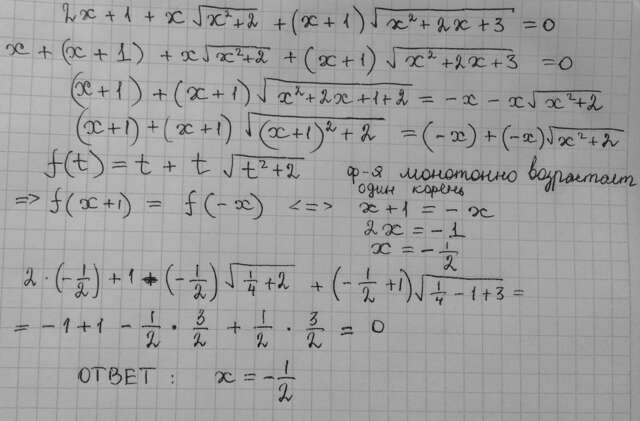 2x + 1 + x√(x²+2) + (x+1)√(x²+2x+3) = 0
x + (x+1) + x√(x²+2) + (x+1)√(x²+2x+3) = 0
(x+1) + (x+1)√(x²+2x+1+2) = -x - x√(x²+2)
(x+1) + (x+1)√((x+1)²+2) = (-x) + (-x)√(x²+2)
f(t) = t + t√(t²+2) ф-я монотонно возрастает
один корень
=> f(x+1) = f(-x) <=> x+1 = -x
2x = -1
x = -1/2
2·(-1/2)+1+(-1/2)√(1/4+2) + (-1/2+1)√(1/4-1+3) =
= -1+1 - 1/2 · 3/2 + 1/2 · 3/2 = 0
ОТВЕТ : x = -1/2